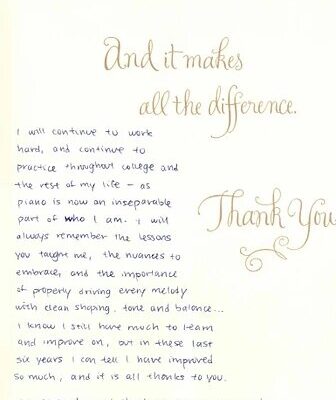 And it makes
all the difference.
I will continue to work
hard, and continue to
practice throughout college and
the rest of my life – as
piano is now an inseparable
part of who I am. I will
Thank You
always remember the lessons
you taught me, the nuances to
embrace, and the importance
of properly driving every melody
with clean shaping, tone and balance...
I know I still have much to learn
and improve on, but in these last
six years I can tell I have improved
so much, and it is all thanks to you.